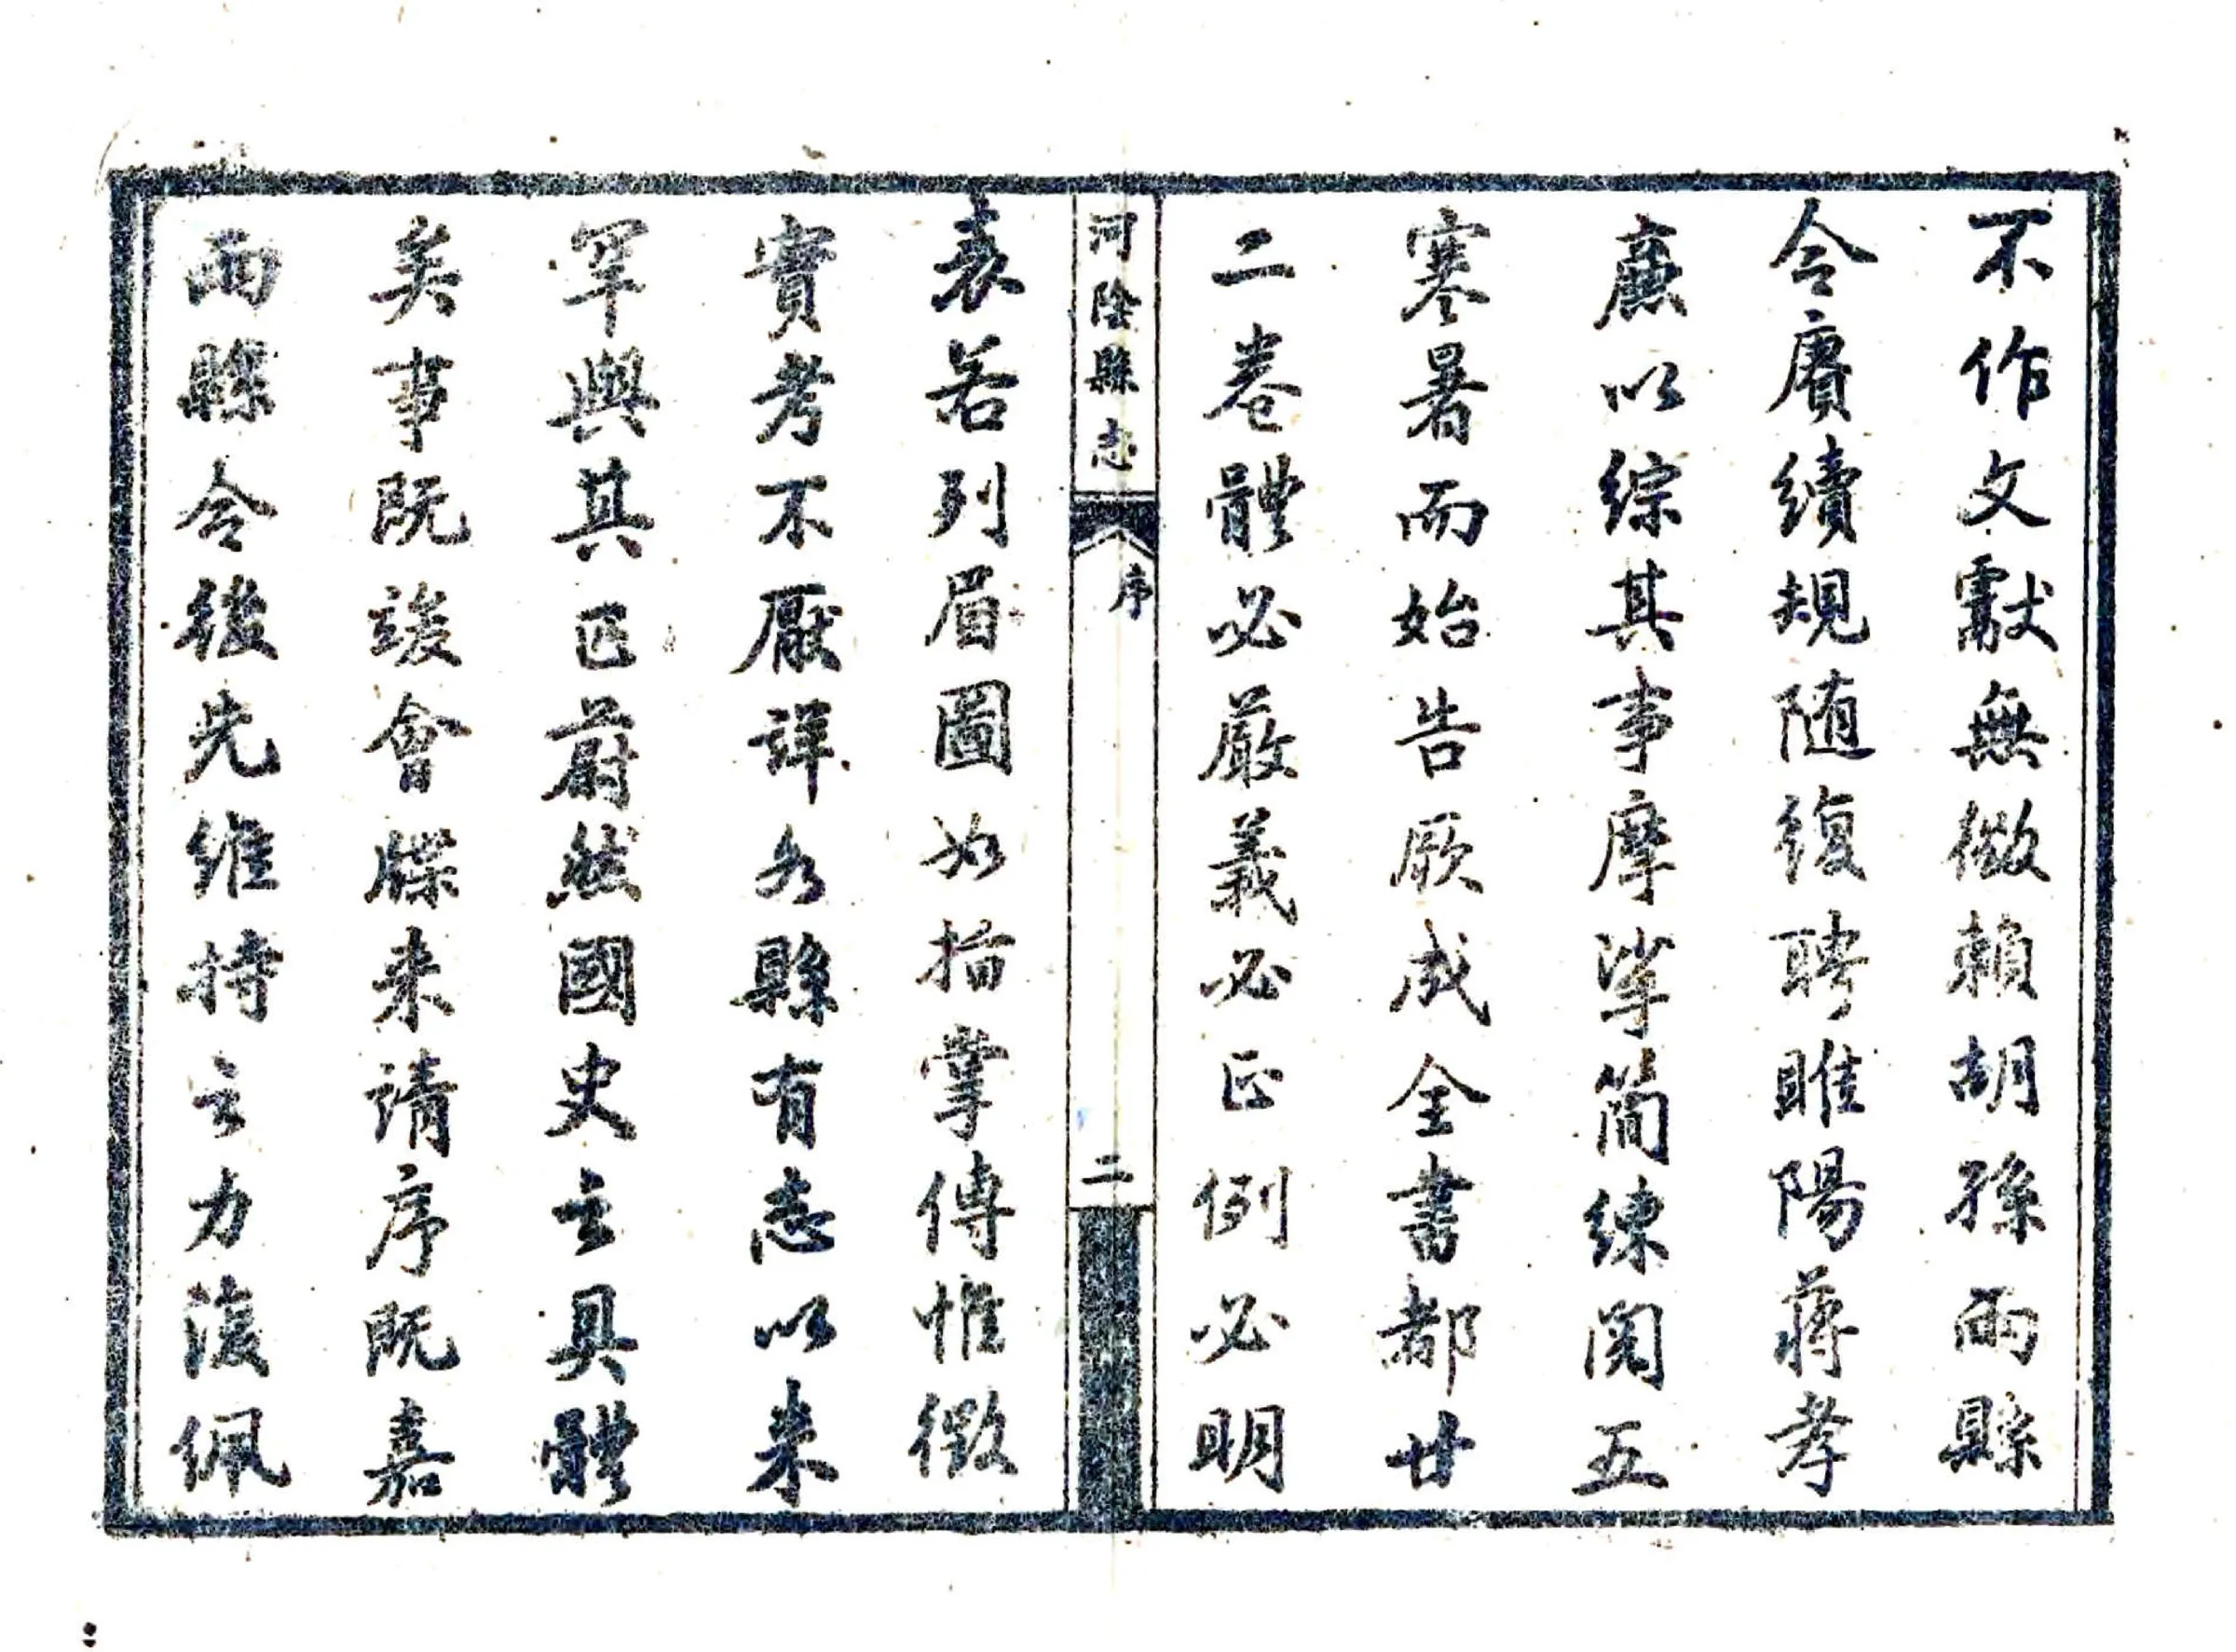 不作文獻無徵賴胡孫兩縣
令賡續規随復聘睢陽蔣孝
廉以綜其事摩挲簡練閱五
寒暑而始告厥成全書都廿
二卷體必嚴義必正例必明
河陰縣志
序
二
表若列眉圖如指掌傳惟徵
實考不厭詳各縣有志以来
罕與其匹蔚然國史之具體
矣事既竣會牒来請序既嘉
兩縣令後先維持之力復佩